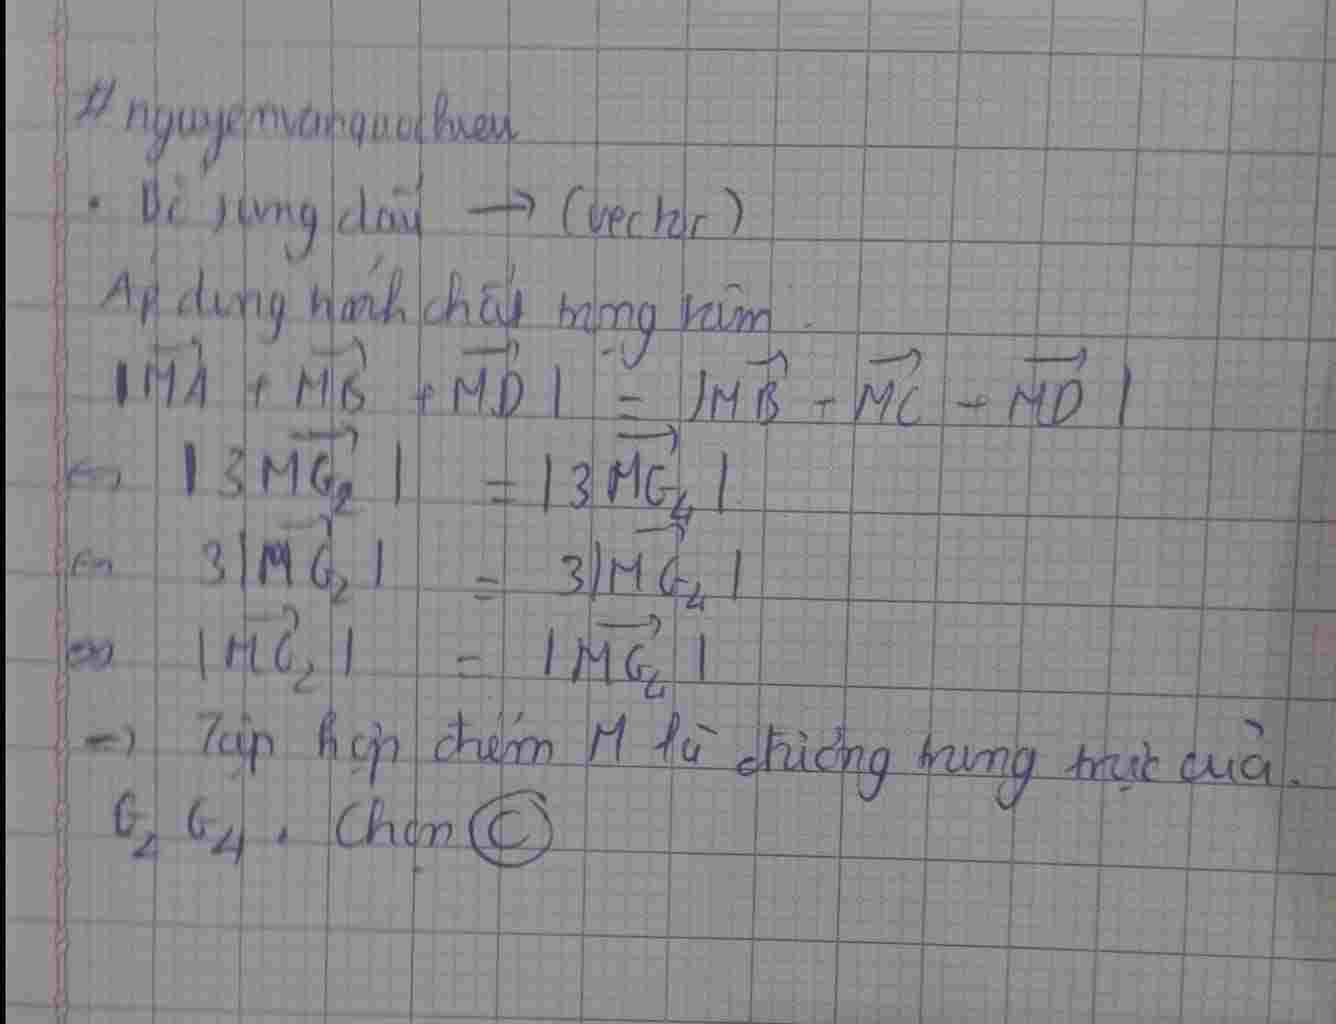 # nguyenvanquochieu
• Bổ sung dấu → (vector)
Áp dụng tính chất trọng tâm
|MA⃗ + MB⃗ + MD⃗| = |MB⃗ + MC⃗ + MD⃗|
⇔ |3MG₂⃗| = |3MG₄⃗|
⇔ 3|MG₂⃗| = 3|MG₄⃗|
⇔ |MG₂⃗| = |MG₄⃗|
→ Tập hợp điểm M là đường trung trực của
G₂ G₄. Chọn C